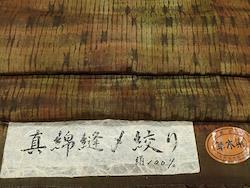 真綿縫〆絞り
絹100%